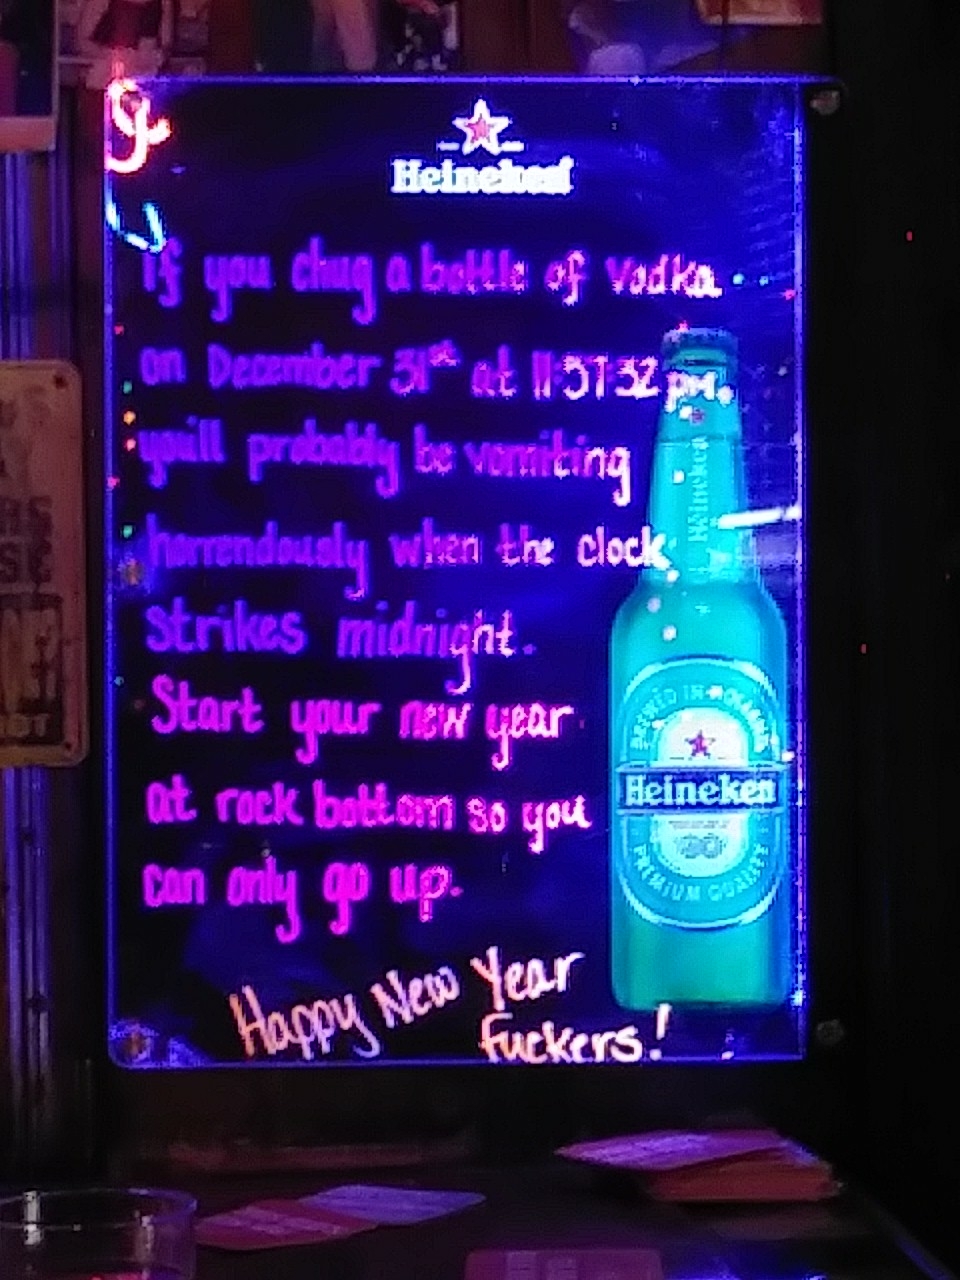 Heineken
If you chug a bottle of Vodka
on December 31st at 11:57:32 pm,
you'll probably be vomiting
horrendously when the clock
Strikes midnight.
Start your new year
at rock bottom so you
can only go up.
Happy New Year
Fuckers!
Heineken
BREWED IN HOLLAND
Heineken
PREMIUM QUALITY